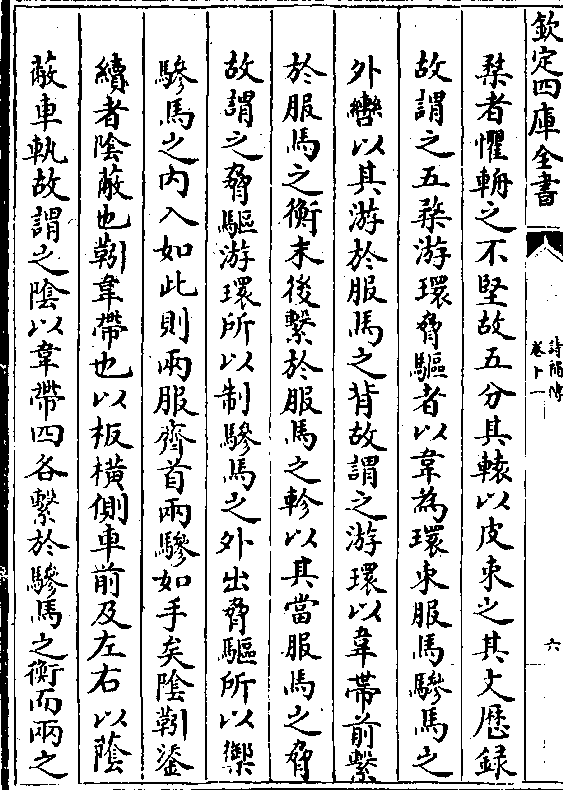 欽定四庫全書
詩補傳
卷十一
六
楘者懼輈之不堅故五分其轅以皮束之其文歴録
故謂之五楘游環脅驅者以韋為環束服馬驂馬之
外轡以其游於服馬之背故謂之游環以韋帶前繫
於服馬之衡末後繫於服馬之軫以其當服馬之脅
故謂之脅驅游環所以制驂馬之外出脅驅所以禦
驂馬之内入如此則兩服齊首兩驂如手矣陰靷鋈
續者陰蔽也靷韋帶也以板横側車前及左右以蔭
蔽車軌故謂之陰以韋帶四各繫於驂馬之衡而兩之